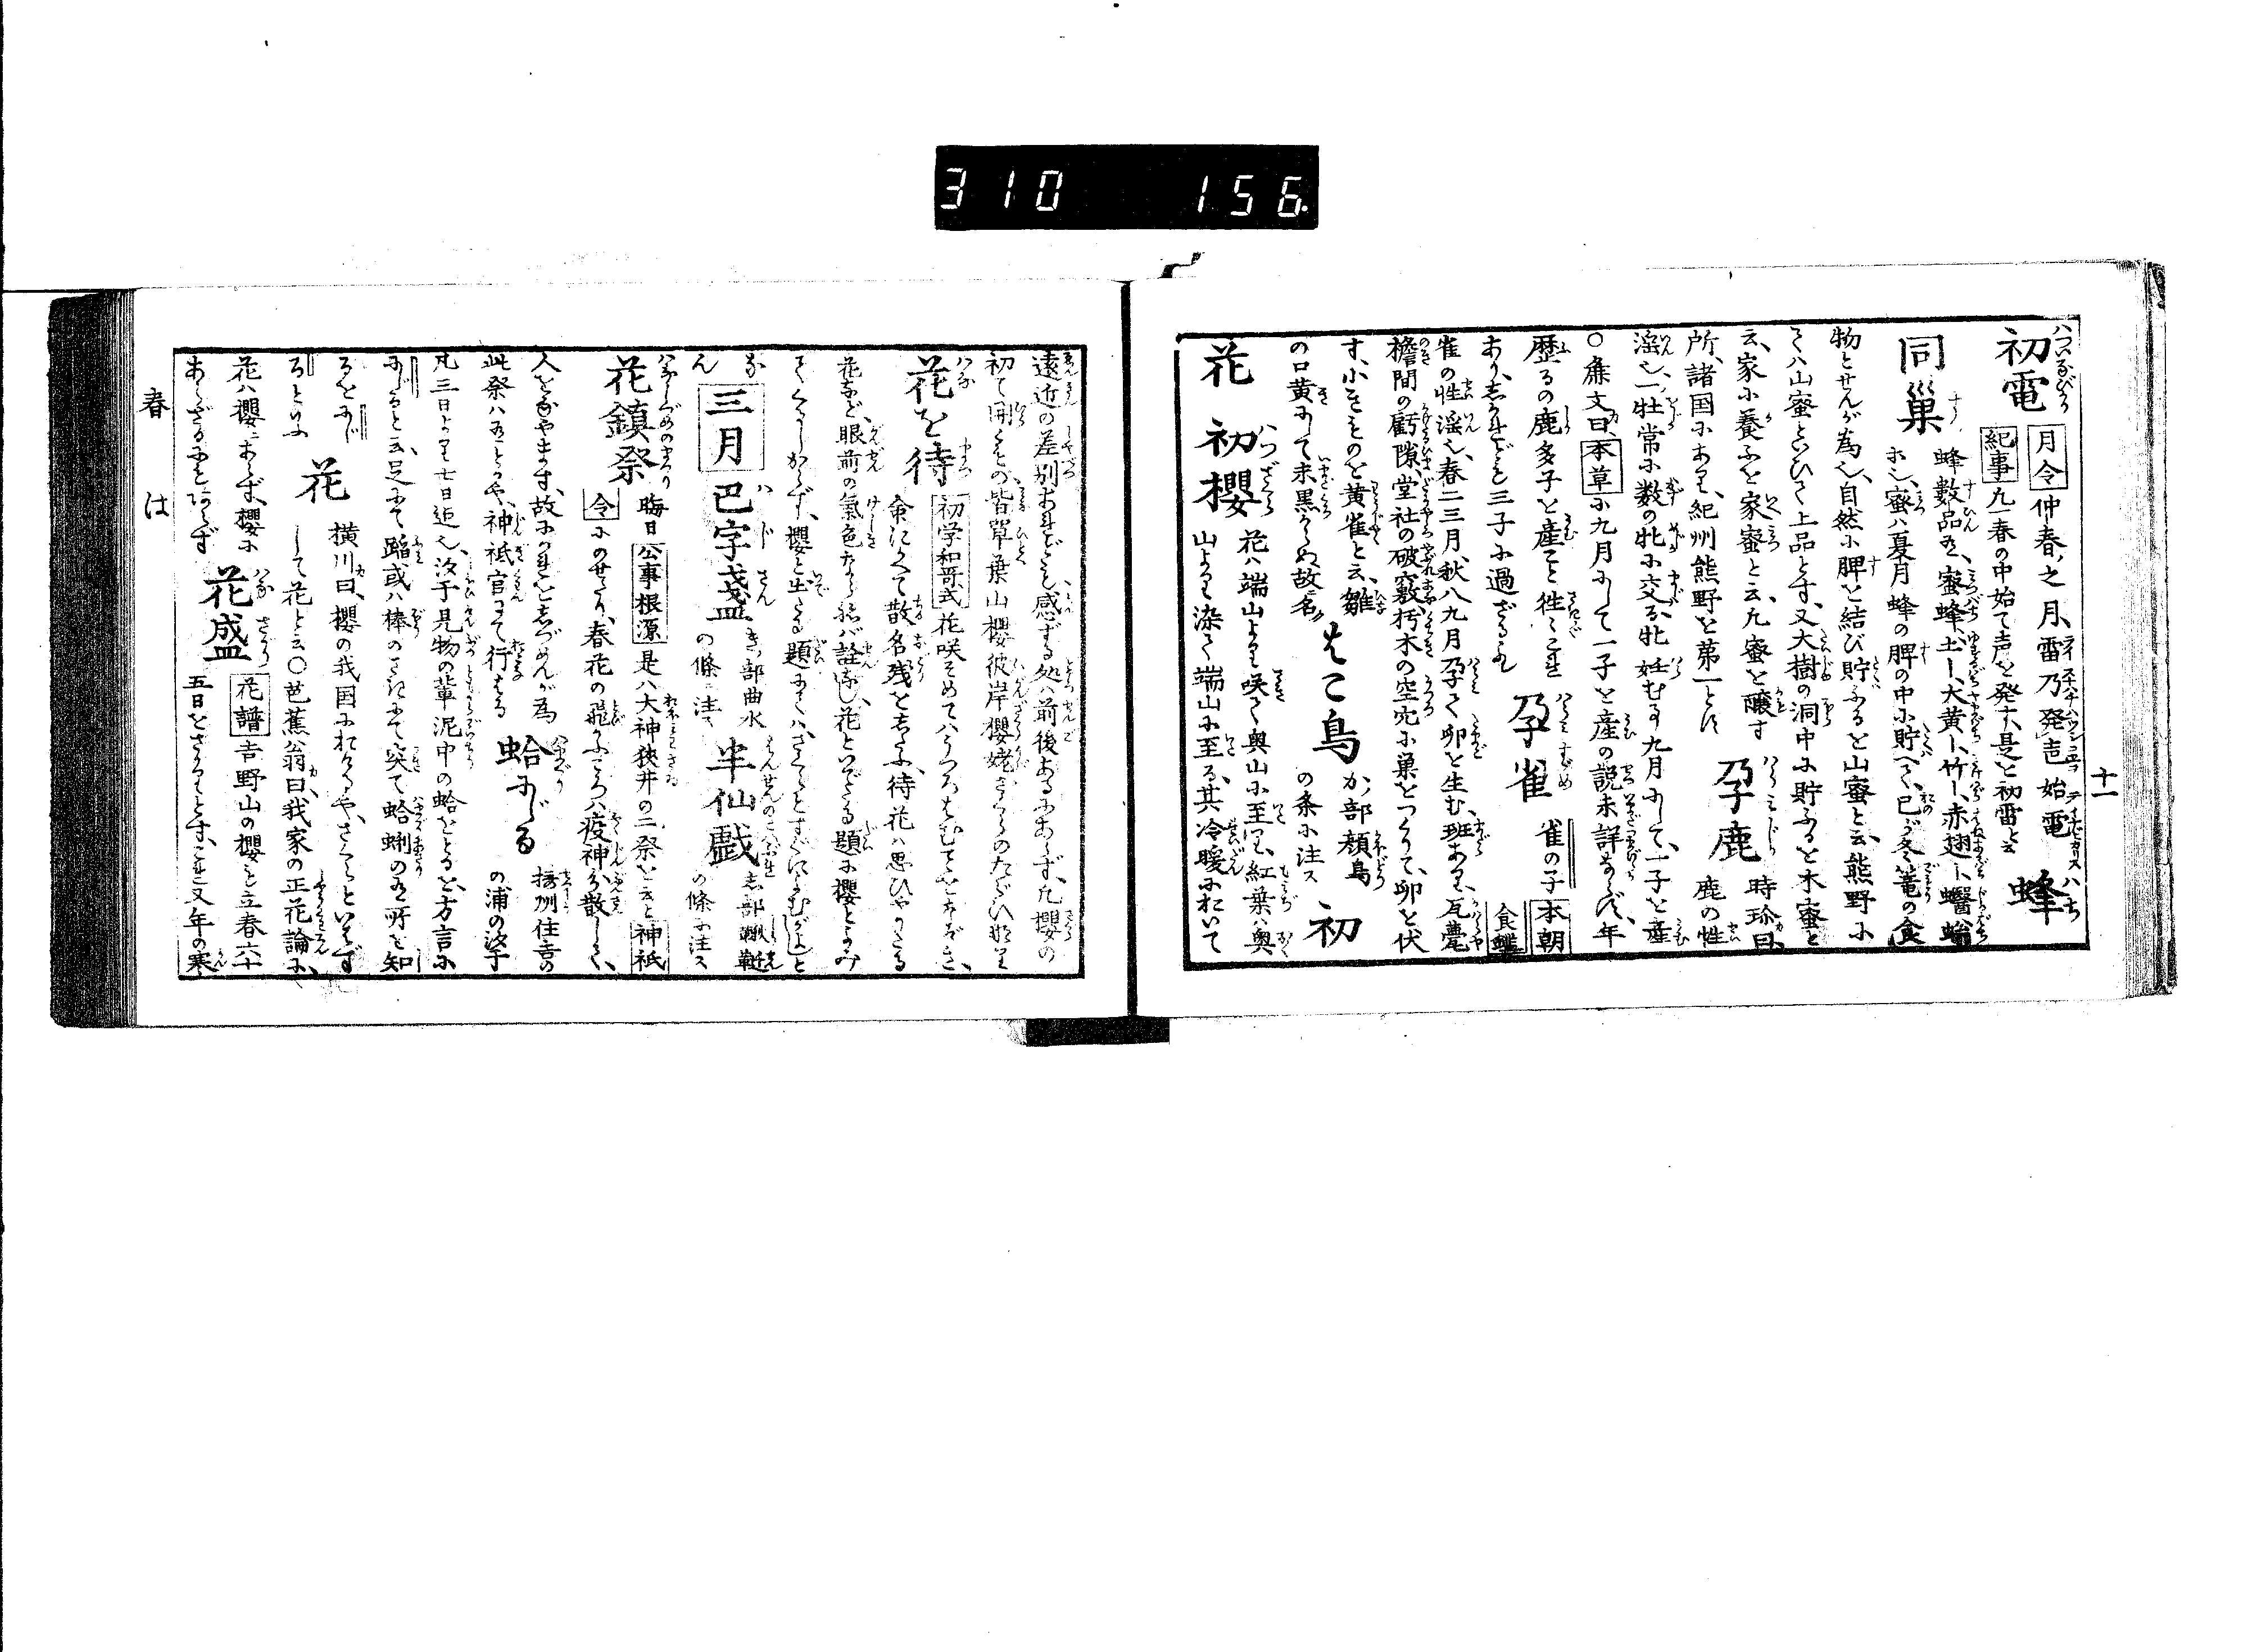 310 156
十一
初電 月令 仲春ノ之月、雷乃発声始電 蜂
紀事 凡一春の中始て声を発す、是を初雷と云
同巣 蜂數品有、蜜蜂、土〡、大黄〡、竹〡、赤翅〡、蠮螉
ホ也、蜜ハ夏月蜂の脾の中ホ貯へて、已が冬篭の食
物とせんが為也、自然ホ脾を結び貯ふるを山蜜と云、熊野ホ
てハ山蜜といひて上品とす、又大樹の洞中ホ貯ふるを木蜜と
云、家ホ養ふを家蜜と云、凡蜜を醸す
所、諸国ホあり、紀州熊野を第一とす 孕鹿 時珍曰、鹿の性
淫也、一牡常ホ数の牝ホ交る、牝妊むる九月ホして、一子を産
○廉文曰 本草 ホ九月ホして一子を産の説未詳ならず、年
歴るの鹿多子を産こと往々これ
あり、しかれども三子ホ過ざるのみ 孕雀 雀の子 本朝食鑑
雀の性淫也、春二三月、秋八九月孕て卵を生む、斑あり、瓦甍
檐間の虧隙、堂社の破竅、朽木の空穴ホ巣をつくりて、卵を伏
す、小きものを黄雀と云、雛
の口黄ホして未黒からぬ故ニ名ク はこ鳥 かノ部顔鳥の条ホ注ス 初
花 初櫻 花ハ端山より咲て奥山ホ至り、紅葉ハ奥
山より染て端山ホ至る、其冷暖ホおいて
遠近の差別あれども、感ずる処ハ前後あるホあらず、凡櫻の
初て開くもの、皆單葉山櫻彼岸櫻姥ざくらのたぐひなり
花を待 初学和哥式 花咲そめてハうつろはむことをなげき、
余に比べて散名残をしたふ、待花ハ思ひやりたる
花など、眼前の氣色ならねバ詮なし、花といでたる題ホ櫻とよみ
てくるしからず、櫻と出たる題ホてハ、さくらとすぐによむが上と
な
ん 三月 巴字盞 きノ部曲水の條ニ注ス 半仙戯 しノ部鞦韆の條ニ注ス
花鎮祭 晦日 公事根源 是ハ大神狭井の二祭を云と 神祇
令 ホのせたり、春花の飛かふころハ疫神分散して、
人をなやます、故ホこれをしづめんが為
此祭ハ有ことゝや、神祇官にて行はる 蛤ふじる 摂州住吉の浦の汐干
凡三日より七日迄也、汐干見物の輩泥中の蛤をとるを、方言ホ
ふじると云、足ホて蹈或ハ棒のさきホて突て蛤蜊の有所を知
るをふじ
るといふ 花 横川曰、櫻の我国ホおけるや、さくらといはず
して花と云○芭蕉翁曰、我家の正花論ホ、
花ハ櫻ニあらず、櫻ホ
あらざるホもあらず 花盛 花譜 吉野山の櫻も立春六十
五日をさかりとす、これ又年の寒
春 は